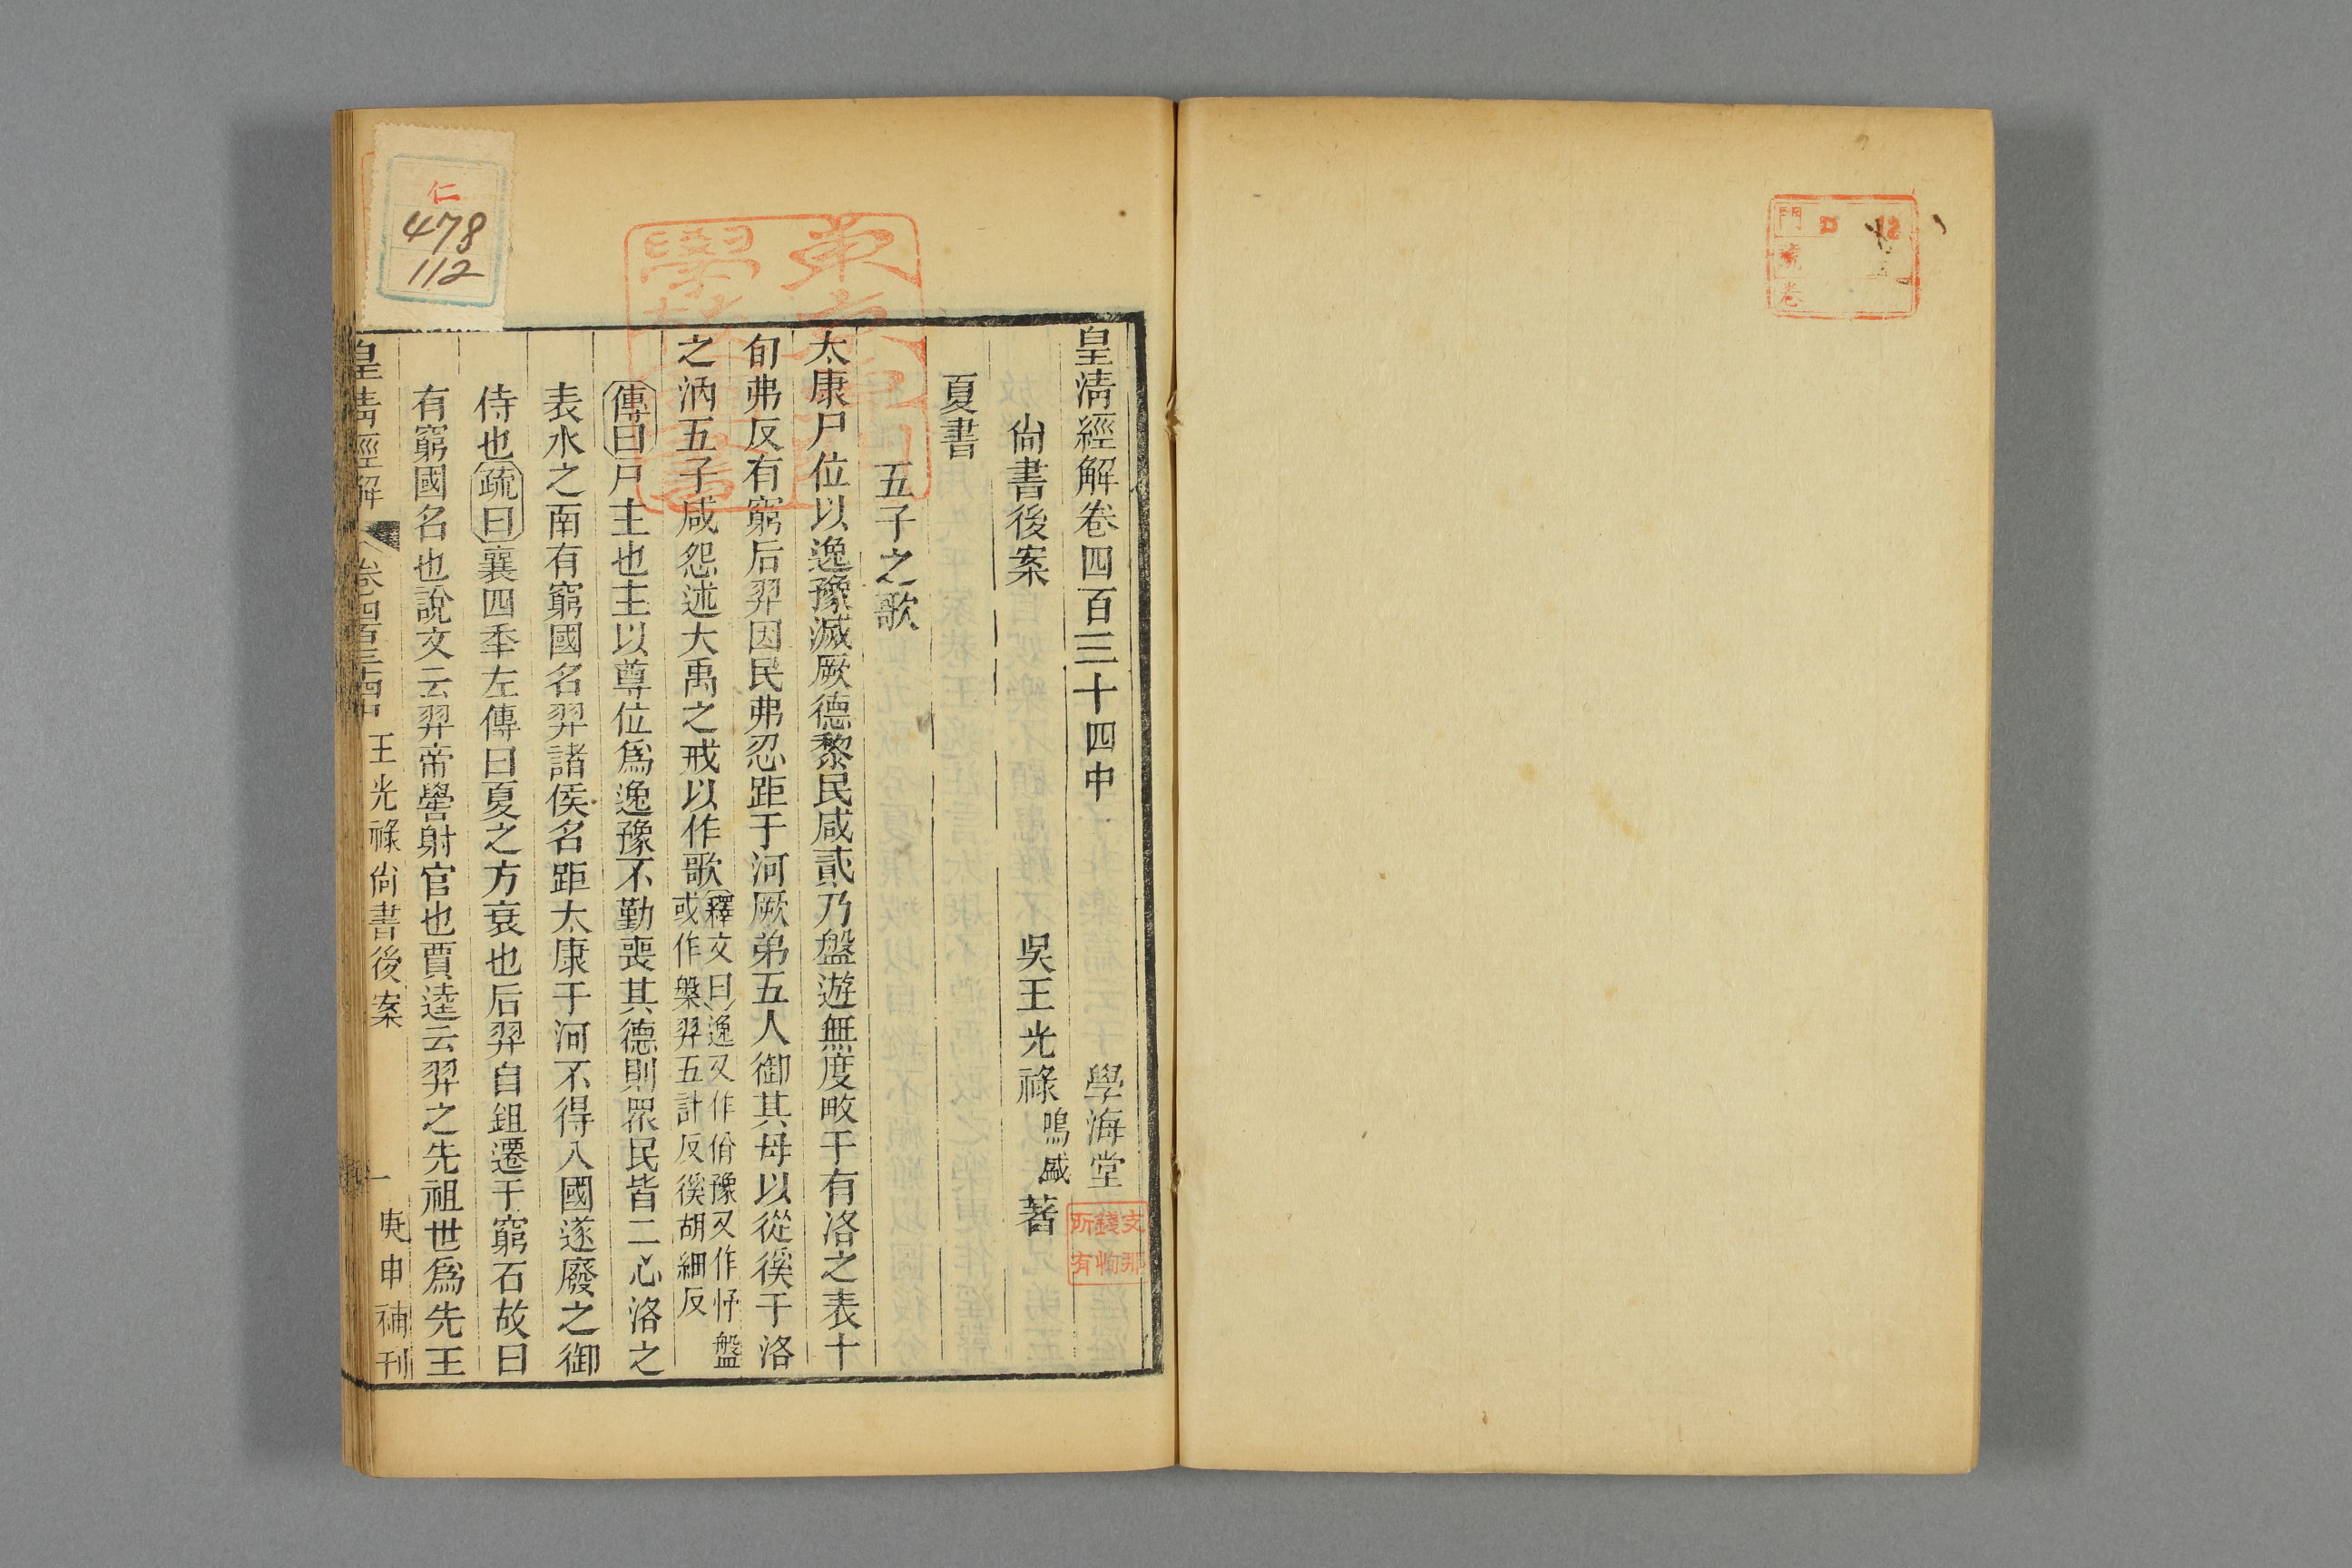 皇清經解卷四百三十四中
學海堂
尙書後案
吳王光祿鳴盛著
夏書
五子之歌
太康尸位以逸豫滅厥德黎民咸貳乃盤遊無度畋于有洛之表十
旬弗反有窮后羿因民弗忍距于河厥弟五人御其母以從徯于洛
之汭五子咸怨述大禹之戒以作歌
釋文曰逸又作佾豫又作忬盤
或作槃羿五計反徯胡細反
傳曰尸主也主以尊位爲逸豫不勤喪其德則眾民皆二心洛之
表水之南有窮國名羿諸侯名距太康于河不得入國遂廢之御
侍也疏曰襄四秊左傳曰夏之方衰也后羿自鉏遷于窮石故曰
有窮國名也說文云羿帝嚳射官也賈逵云羿之先祖世爲先王
皇清經解
卷四百三十四中
王光祿尙書後案
一
庚申補刊
仁
478
112
門
號
卷
支那
錢恂
所有